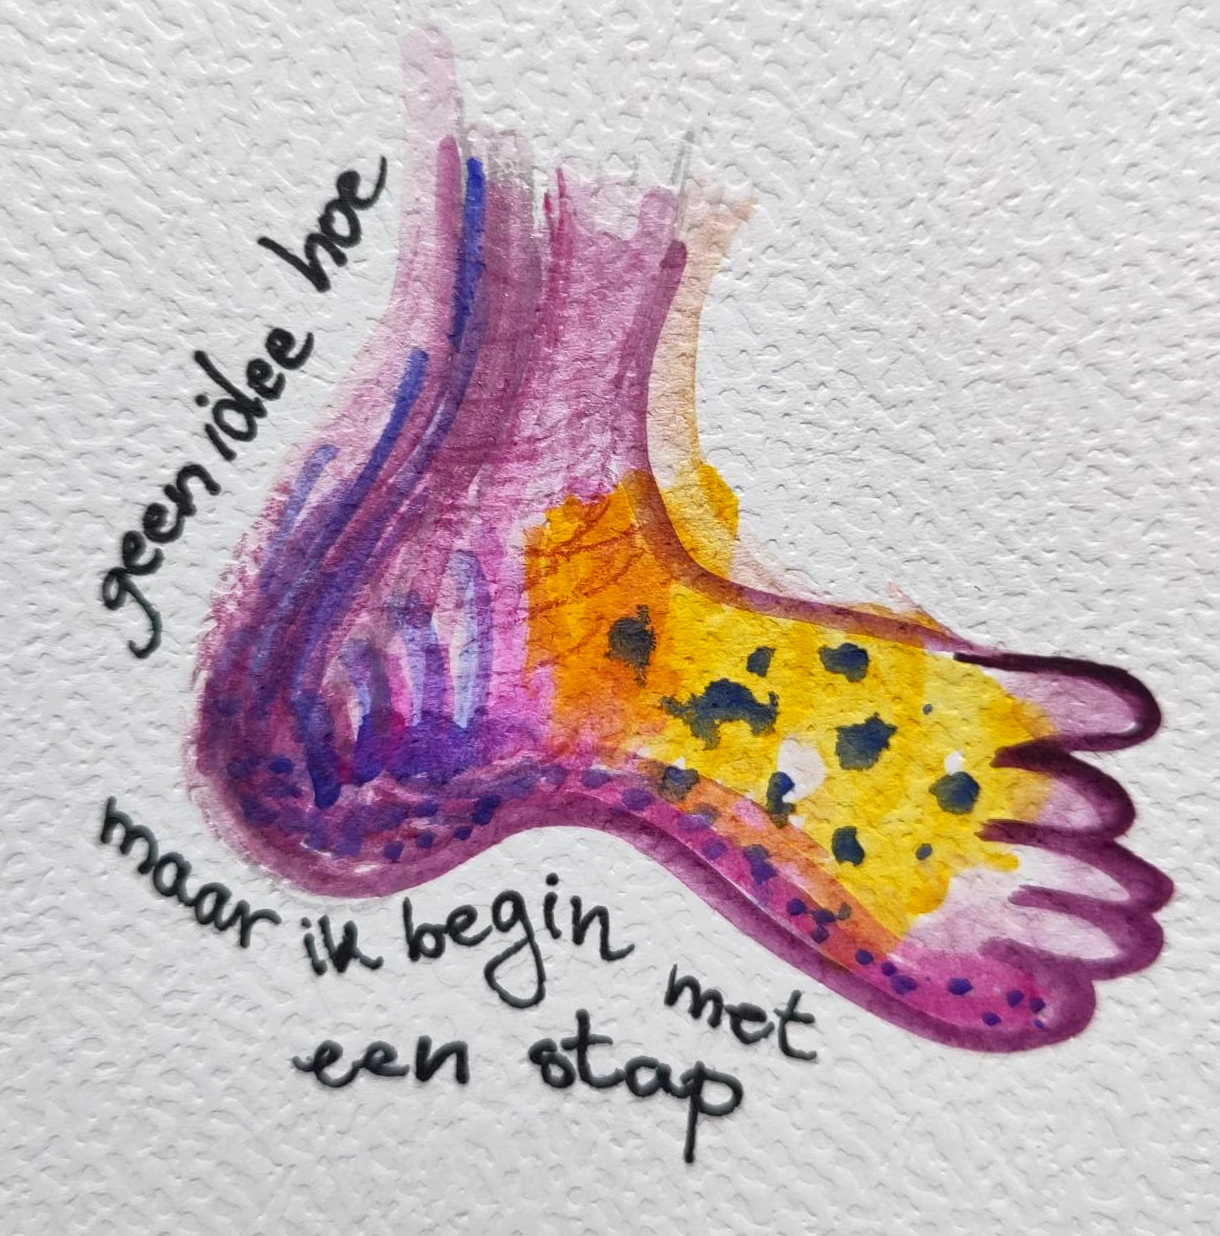 geen idee hoe
maar ik begin met
een stap